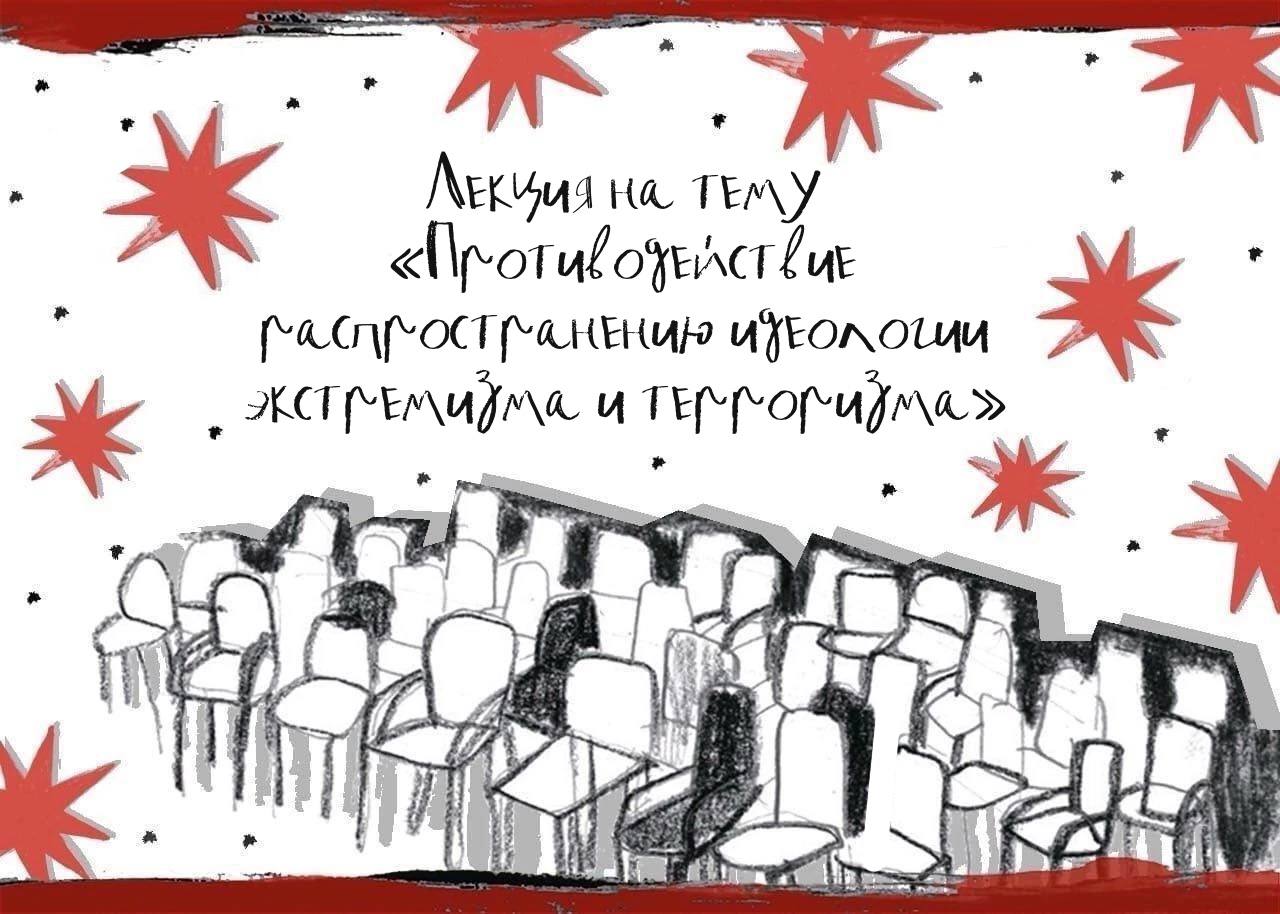 Лекция на тему
«Противодействие
распространению идеологии
экстремизма и терроризма»